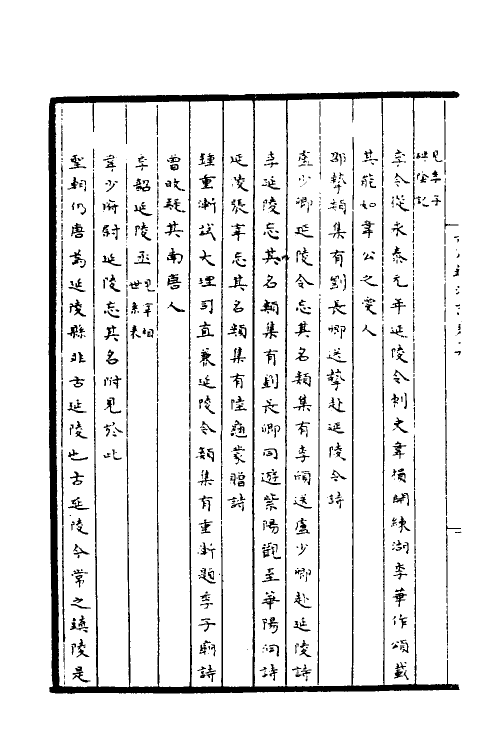 見季子碑陰記
李令從永泰元年延陵令刺史韋損開練湖李華作頌載
其能如韋公之愛人
鄧摯類集有劉長卿送摯赴延陵令詩
盧少卿延陵令忘其名類集有李頎送盧少卿赴延陵詩
李延陵忘其名類集有劉長卿同遊紫陽觀至華陽洞詩
延陵張宰忘其名類集有陸龜蒙贈詩
鍾重漸試大理司直兼延陵令類集有重漸題季子廟詩
曾旼疑其南唐人
李韶延陵丞見宰相世系表
韋少府尉延陵忘其名附見於此
聖朝仍唐舊延陵縣非古延陵也古延陵今常之鎮陵是